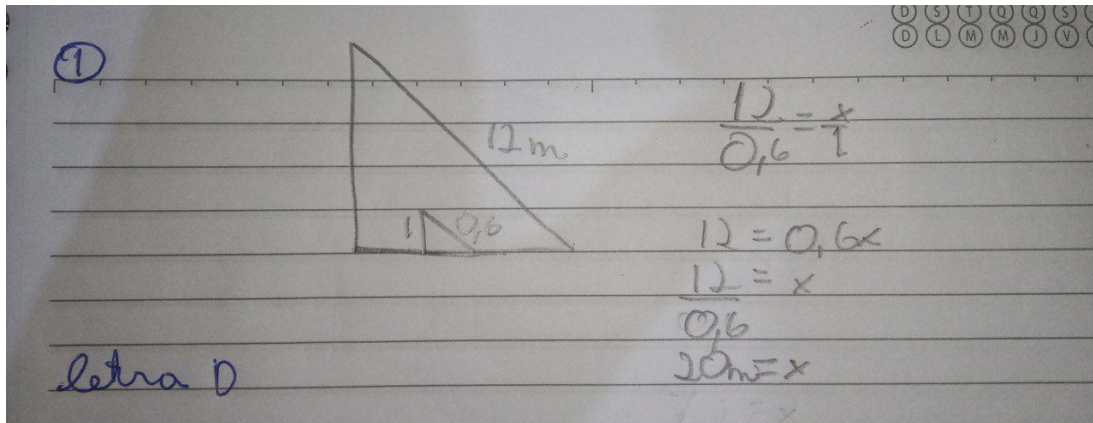 D S T Q Q S
D L M M J V
1
12 m
1 0,6
12/0,6 = x/1
12 = 0,6x
12/0,6 = x
20m = x
letra D